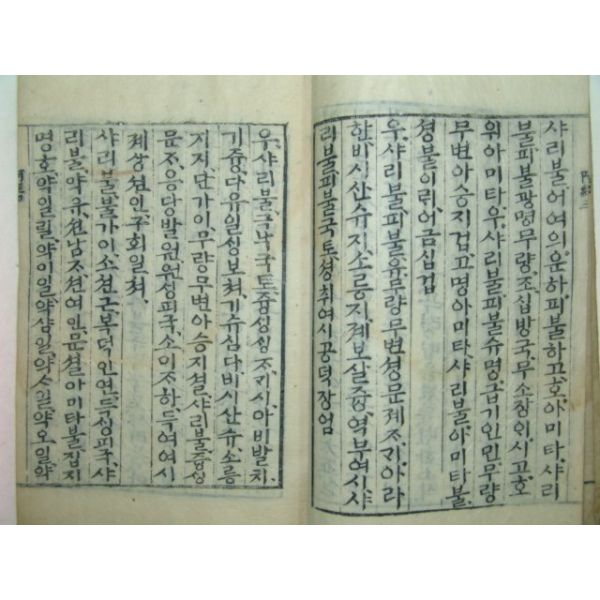 샤리불어여의운하피불하고호아미타샤리
불피불광명무량조십방국무소장익시고호
위아미타우샤리불피불슈명급기인민무량
무변아승지겁고명아미타샤리불아미타불
셩불이릭어금십겁
우샤리불피불유무량무변셩문뎨ᄌᆞᄀᆡ아라
한비시산슈지소릉지졔보살즁역부여시샤
리불피불국토셩취여시공덕장엄
우샤리불극낙국토즁ᄉᆡᆼᄉᆡᆼᄌᆞᄀᆡ시아비발치
기즁다유일ᄉᆡᆼ보쳐기슈심다비시산슈소릉
지지단가이무량무변아승지셜샤리불즁ᄉᆡᆼ
문ᄌᆞ응당발원원ᄉᆡᆼ피국소이ᄌᆞ하득여여시
졔상션인구회일쳐
샤리불불가이소션근복덕인연득ᄉᆡᆼ피국샤
리불약유션남ᄌᆞ션여인문셜아미타불집지
명호약일일약이일약삼일약ᄉᆞ일약오일약